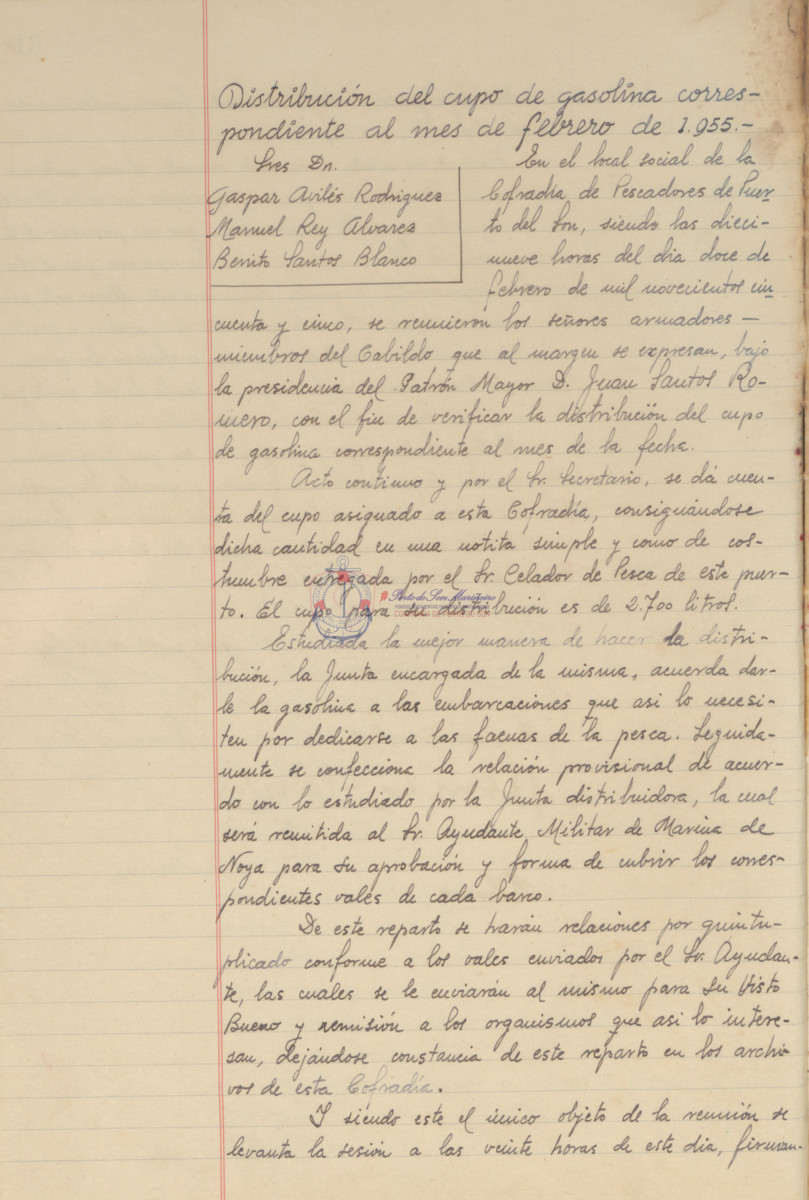 Distribución del cupo de gasolina corres-
pondiente al mes de febrero de 1.955.-
Sres Dn.
Gaspar Avilés Rodriguez
Manuel Rey Alvarez
Benito Santos Blanco
En el local social de la
Cofradía de Pescadores de Puer-
to del Son, siendo las dieci-
nueve horas del dia doce de
febrero de mil novecientos cin
cuenta y cinco, se reunieron los señores armadores —
miembros del Cabildo que al margen se expresan, bajo
la presidencia del Patrón Mayor D. Juan Santos Ro-
mero, con el fin de verificar la distribución del cupo
de gasolina correspondiente al mes de la fecha.
Acto continuo y por el Sr. Secretario, se dá cuen-
ta del cupo asignado a esta Cofradía, consignándose
dicha cantidad en una notita simple y como de cos-
tumbre entregada por el Sr. Celador de Pesca de este puer-
to. El cupo para su distribución es de 2.700 litros.
Porto do Son Mariñeiro
Estudiada la mejor manera de hacer la distri-
bución, la Junta encargada de la misma, acuerda dar-
le la gasolina a las embarcaciones que asi lo necesi-
ten por dedicarse a las faenas de la pesca. Seguida-
mente se confecciona la relación provisional de acuer-
do con lo estudiado por la Junta distribuidora, la cual
será remitida al Sr. Ayudante Militar de Marina de
Noya para su aprobación y forma de cubrir los corres-
pondientes vales de cada barco.
De este reparto se harán relaciones por quintu-
plicado conforme a los vales enviados por el Sr. Ayudan-
te, las cuales se le enviarán al mismo para su Visto
Bueno y remisión a los organismos que asi lo intere-
san, dejándose constancia de este reparto en los archi-
vos de esta Cofradía.
Y siendo este el único objeto de la reunión se
levanta la sesión a las veinte horas de este dia, firman-